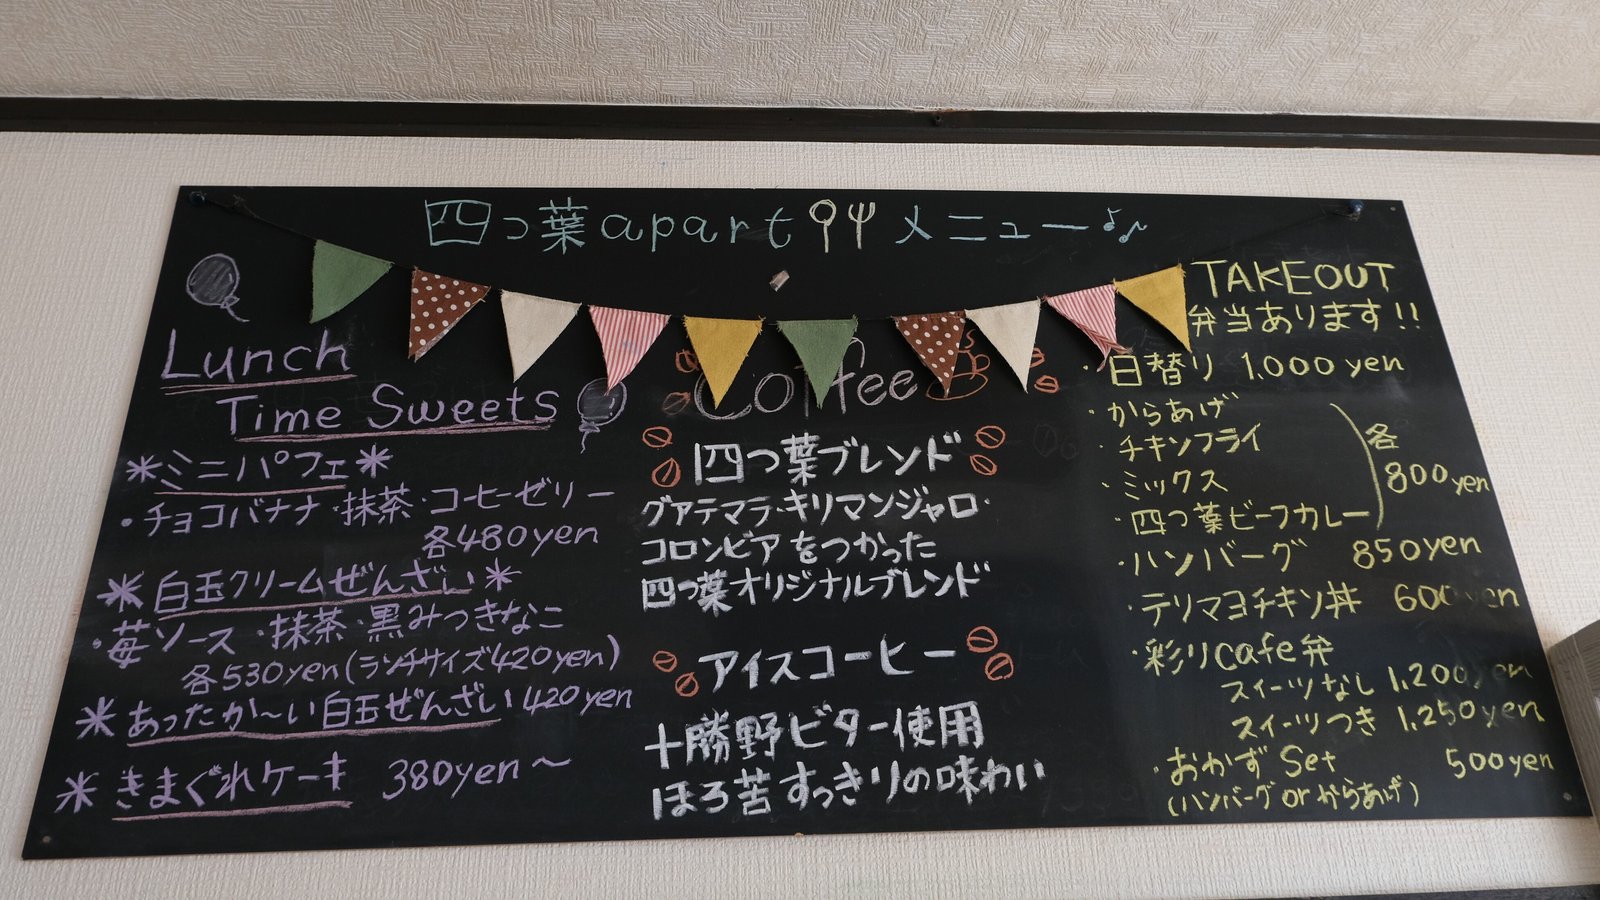 四つ葉apart メニュー♪♪
Lunch
Time Sweets
＊ミニパフェ＊
・チョコバナナ・抹茶・コーヒーゼリー
各480yen
＊白玉クリームぜんざい＊
・苺ソース・抹茶・黒みつきなこ
各530yen(ランチサイズ420yen)
＊あったか〜い白玉ぜんざい 420yen
＊きまぐれケーキ 380yen〜
Coffee
四つ葉ブレンド
グアテマラ・キリマンジャロ・
コロンビアをつかった
四つ葉オリジナルブレンド
アイスコーヒー
十勝野ビター使用
ほろ苦すっきりの味わい
TAKEOUT
弁当あります!!
・日替り 1,000yen
・からあげ
・チキンフライ
・ミックス
・四つ葉ビーフカレー
各
800yen
・ハンバーグ 850yen
・テリマヨチキン丼 600yen
・彩りcafe弁
スイーツなし 1,200yen
スイーツつき 1,250yen
・おかずSet 500yen
(ハンバーグorからあげ)